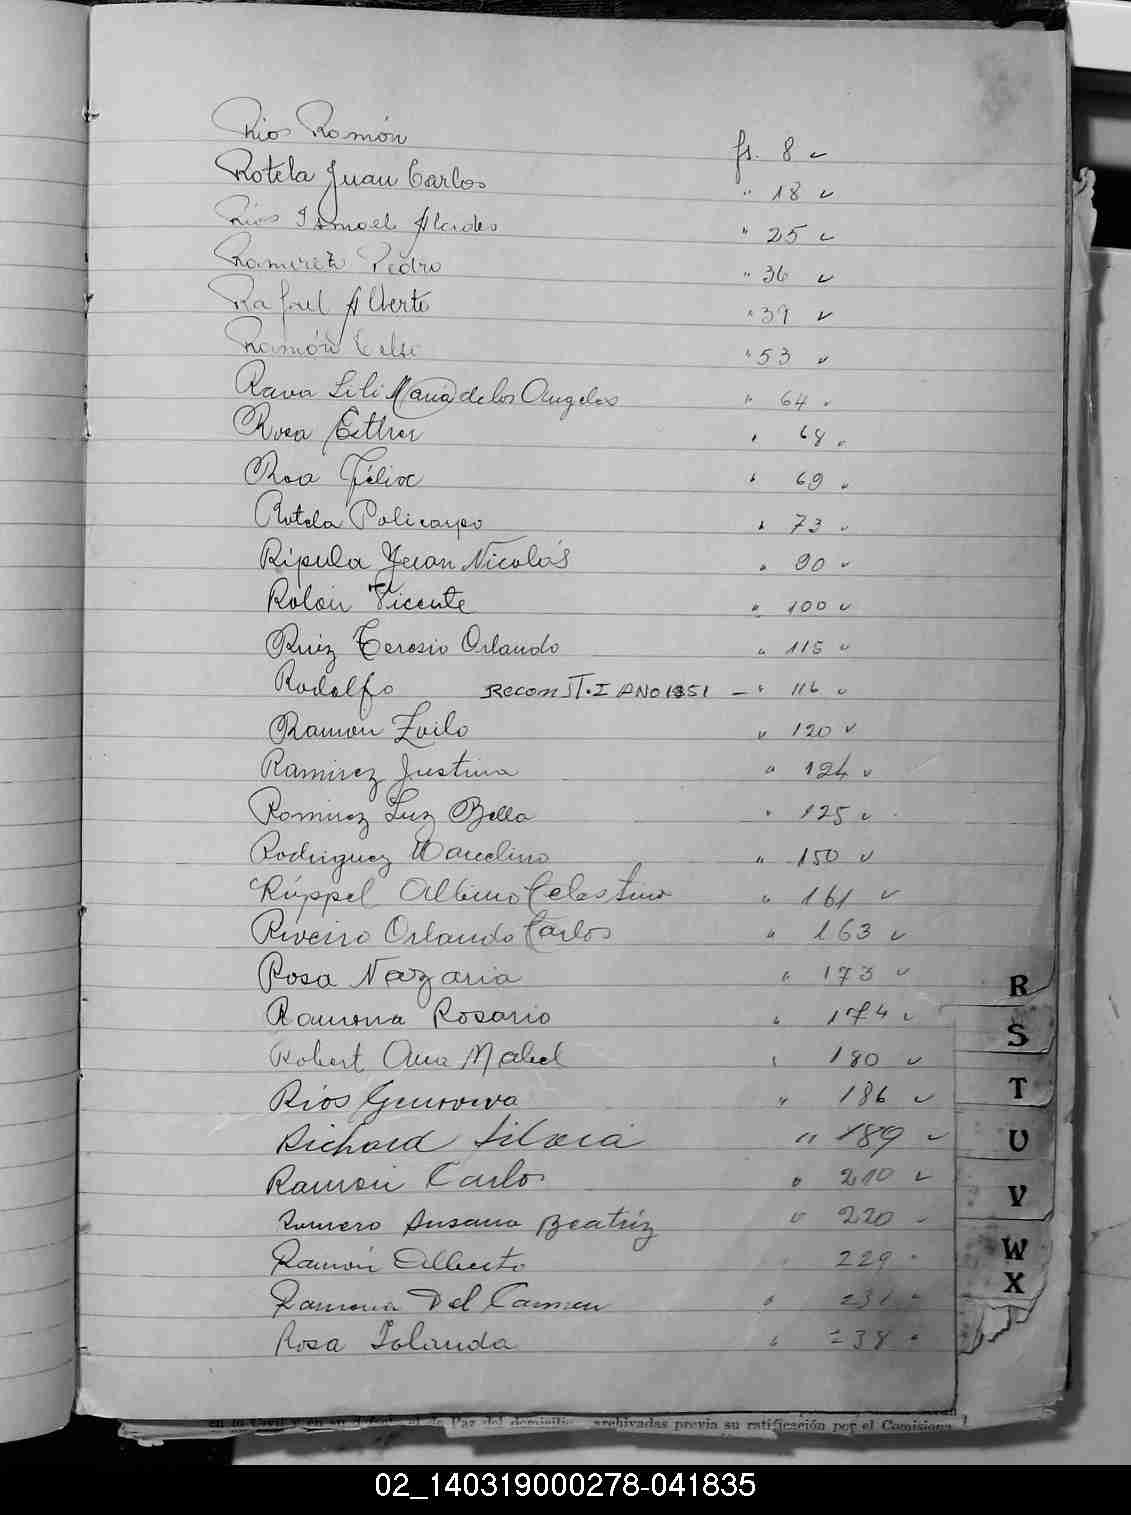 Rios Ramón fs. 8 ✓
Rotela Juan Carlos " 18 ✓
Rios Ismael Alcides " 25 ✓
Ramirez Pedro " 36 ✓
Rafael Alberto " 39 ✓
Ramón Celso " 53 ✓
Rava Lili María de los Angeles " 64 ✓
Rosa Esther " 68 ✓
Roa Félix " 69 ✓
Rotela Policarpo " 73 ✓
Rípula Juan Nicolás " 90 ✓
Rolón Vicente " 100 ✓
Ruiz Teresio Orlando " 115 ✓
Rodolfo Reconst. I ANO 1351 - " 116 ✓
Ramon Zoilo " 120 ✓
Ramirez Justina " 124 ✓
Ramirez Luz Bella " 125 ✓
Rodriguez Marcelino " 150 ✓
Rúppel Albino Celestino " 161 ✓
Riveiro Orlando Carlos " 163 ✓
Rosa Nazaria " 173 ✓
Ramona Rosario " 174 ✓
Robert Ana Mabel " 180 ✓
Rios Genoveva " 186 ✓
Richard Silvia " 189 ✓
Ramón Carlos " 210 ✓
Romero Susana Beatríz " 220 ✓
Ramón Alberto 229
Ramona Del Carmen " 231
Rosa Iolanda " 238
R
S
T
U
V
W
X
en lo Civil y en su defecto el de Paz del domicilio archivadas previa su ratificación por el Comisiona
02_140319000278-041835